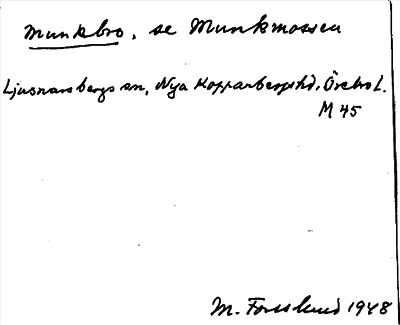 Munkbro, se Munkmossen
Ljusnarsbergs sn, Nya Kopparbergs hd, Örebro l.
M 45
M. Forslund 1948